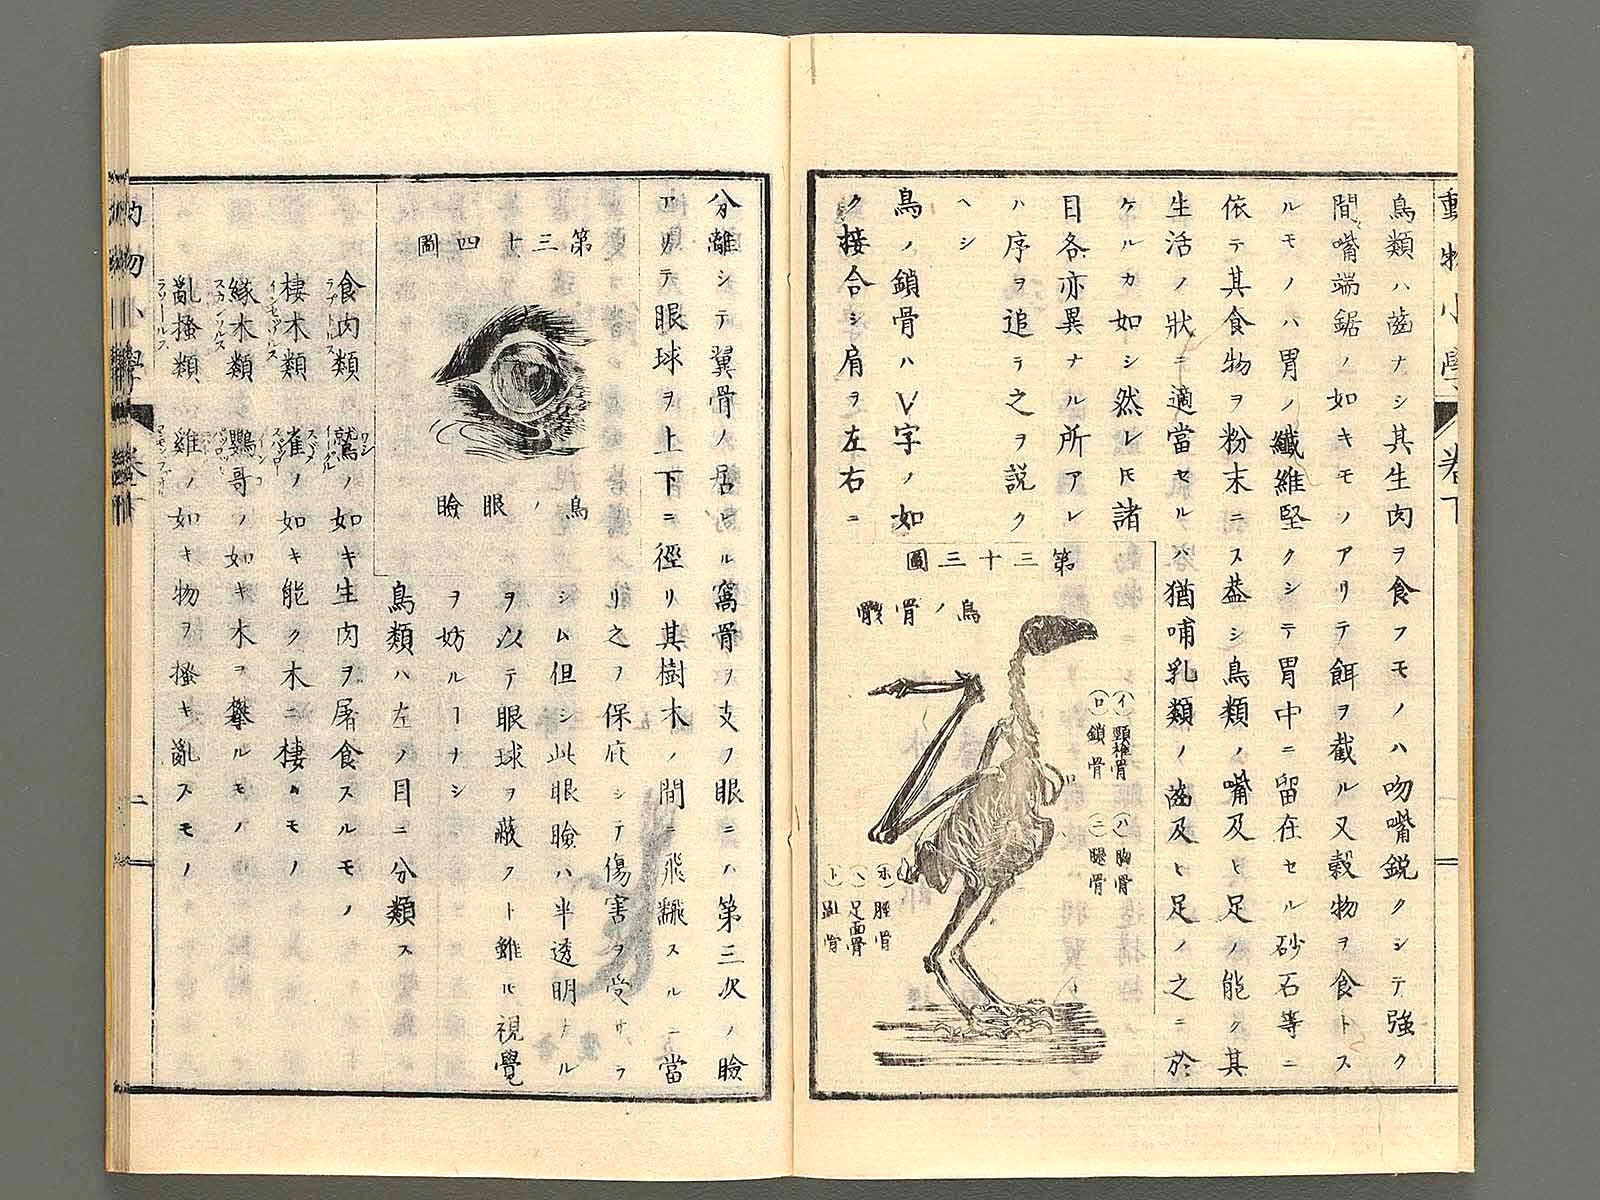 動物小學
卷下
鳥類ハ齒ナシ其生肉ヲ食フモノハ吻嘴鋭クシテ強ク
間〻嘴端鋸ノ如キモノアリテ餌ヲ截ル又穀物ヲ食トス
ルモノハ胃ノ纎維堅クシテ胃中ニ留在セル砂石等ニ
依テ其食物ヲ粉末ニス蓋シ鳥類ノ嘴及ヒ足ノ能ク其
生活ノ狀ニ適當セルハ猶哺乳類ノ齒及ヒ足ノ之ニ於
ケルカ如シ然レ𪜈諸
目各亦異ナル所アレ
ハ序ヲ追テ之ヲ説ク
ヘシ
鳥ノ鎖骨ハV字ノ如
ク接合シ肩ヲ左右ニ
第三十三圖
鳥ノ骨骸
㋑頸椎骨
㋺鎖骨
㋩胸骨
㋥腿骨
㋭脛骨
㋬足面骨
㋣趾骨
分離シテ翼骨ノ居ヒル窩骨ヲ支フ眼ニハ第三次ノ瞼
アリテ眼球ヲ上下ニ徑リ其樹木ノ間ニ飛翽スルニ當
リ之ヲ保庇シテ傷害ヲ受サラ
シム但シ此眼瞼ハ半透明ナル
ヲ以テ眼球ヲ蔽フト雖𪜈視覺
ヲ妨ルヿナシ
第三十四圖
鳥ノ眼瞼
鳥類ハ左ノ目ニ分類ス
食肉類 鷲ノ如キ生肉ヲ屠食スルモノ
ラプトルス ワシ イーグル
棲木類 雀ノ如キ能ク木ニ棲ルモノ
インセソルス スヾメ スパルロー
緣木類 鸚哥ノ如キ木ヲ攀ルモノ
スカンソルス インコ パルロット
亂搔類 雞ノ如キ物ヲ搔キ亂スモノ
ラソールス
動物小學
卷下
二